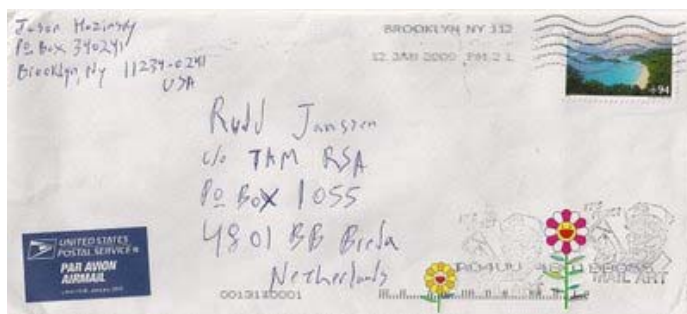 Jason
PO Box 340241
Brooklyn, Ny 11234-0241
USA
BROOKLYN NY 112
12 JAN 2009 PM 2 L
94
Ruud Janssen
c/o TAM RSA
PO BOX 1055
4801 BB Breda
Netherlands
UNITED STATES
POSTAL SERVICE
PAR AVION
AIRMAIL
0013140001
MAIL ART